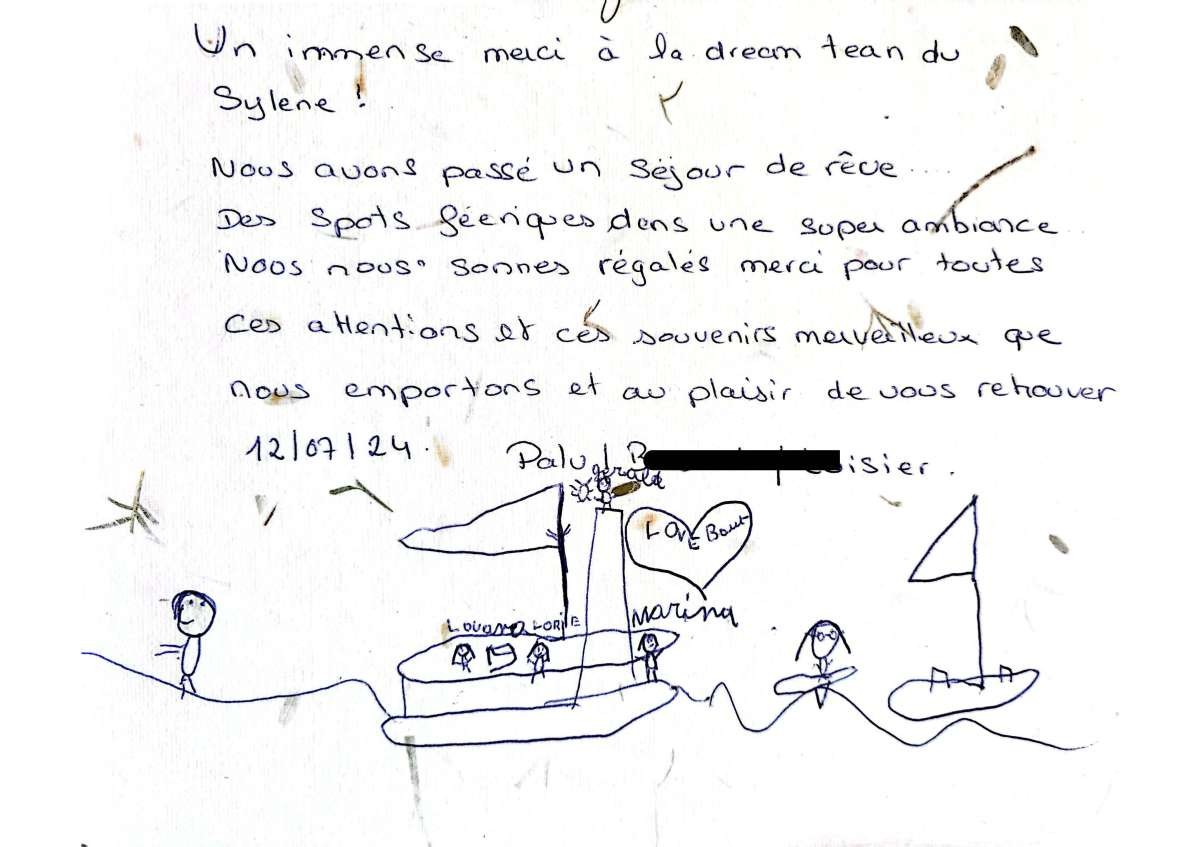 Un immense merci à la dream tean du
Sylene !
Nous avons passé un séjour de rêve ....
Des spots féeriques dans une super ambiance ..
Noos nous sonnes régalés merci pour toutes
ces attentions et ces souvenirs merveilleux que
nous emportons et au plaisir de vous retrouver
12/07/24.
Palud B isier.
gérald
LOVE Baut
Louana LORIE
Marina